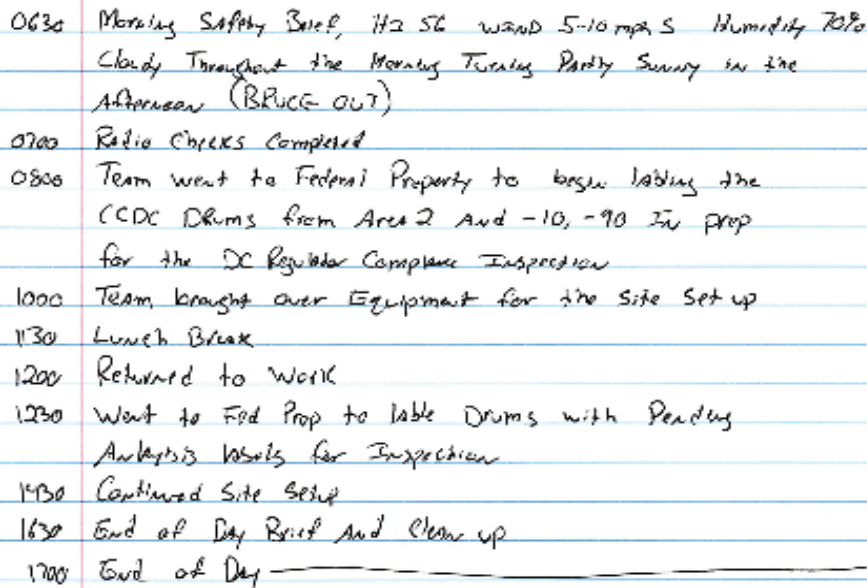 0630 Morning Safety Brief, Hi 56 wind 5-10 mph S Humidity 70%
Cloudy Throughout the Morning Turning Partly Sunny in the
Afternoon (BRUCE OUT)
0700 Radio Checks Completed
0800 Team went to Federal Property to begin labling the
CCDC Drums from Area 2 And -10, -90 In prep
for the DC Regulator Compliance Inspection
1000 Team brought over Equipment for the Site Set up
1130 Lunch Break
1200 Returned to Work
1230 Went to Fed Prop to lable Drums with Pending
Analysis labels for Inspection
1430 Continued Site Setup
1630 End of Day Brief And Clean up
1700 End of Day